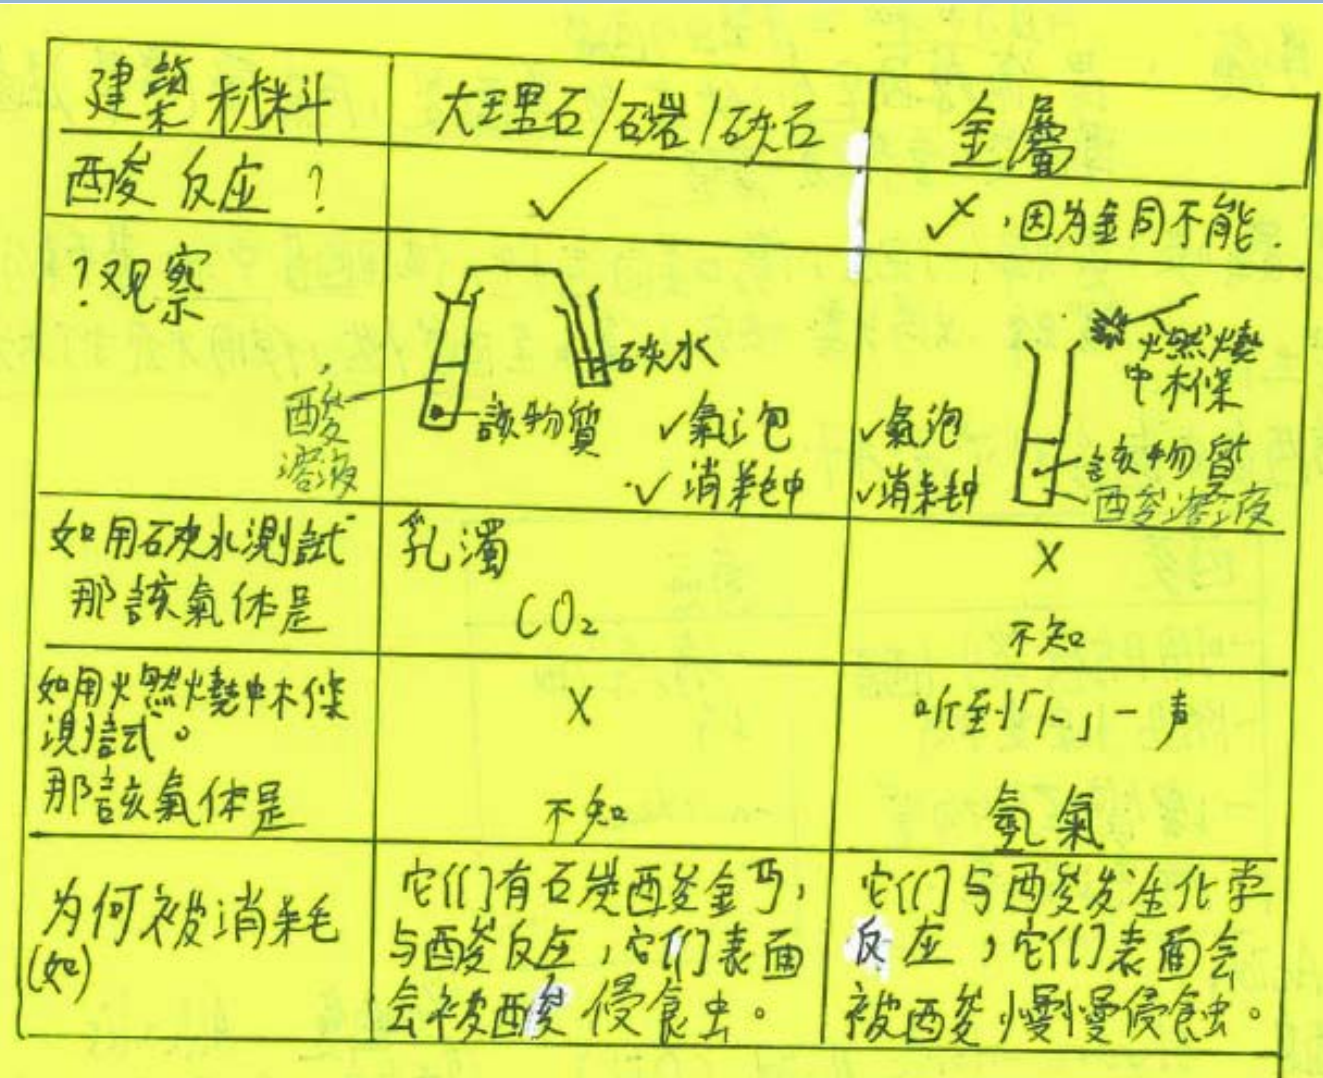 建築材料
大理石/石岩/石灰石
金屬
酸反应?
✓
✓ ✗,因为金同不能.
?观察
酸
溶液
該物質
石灰水
✓氣泡
✓消耗中
✓氣泡
✓消耗中
燃燒
中木條
該物質
酸溶液
如用石灰水測試
那該氣体是
乳濁
CO₂
X
不知
如用燃燒中木條
測試。
那該氣体是
X
不知
听到「卜」一声
氫氣
为何被消耗
(如)
它们有石炭酸金丐,
与酸反应,它们表面
会被酸侵食虫。
它们与酸发生化学
反应,它们表面会
被酸慢慢侵蝕。